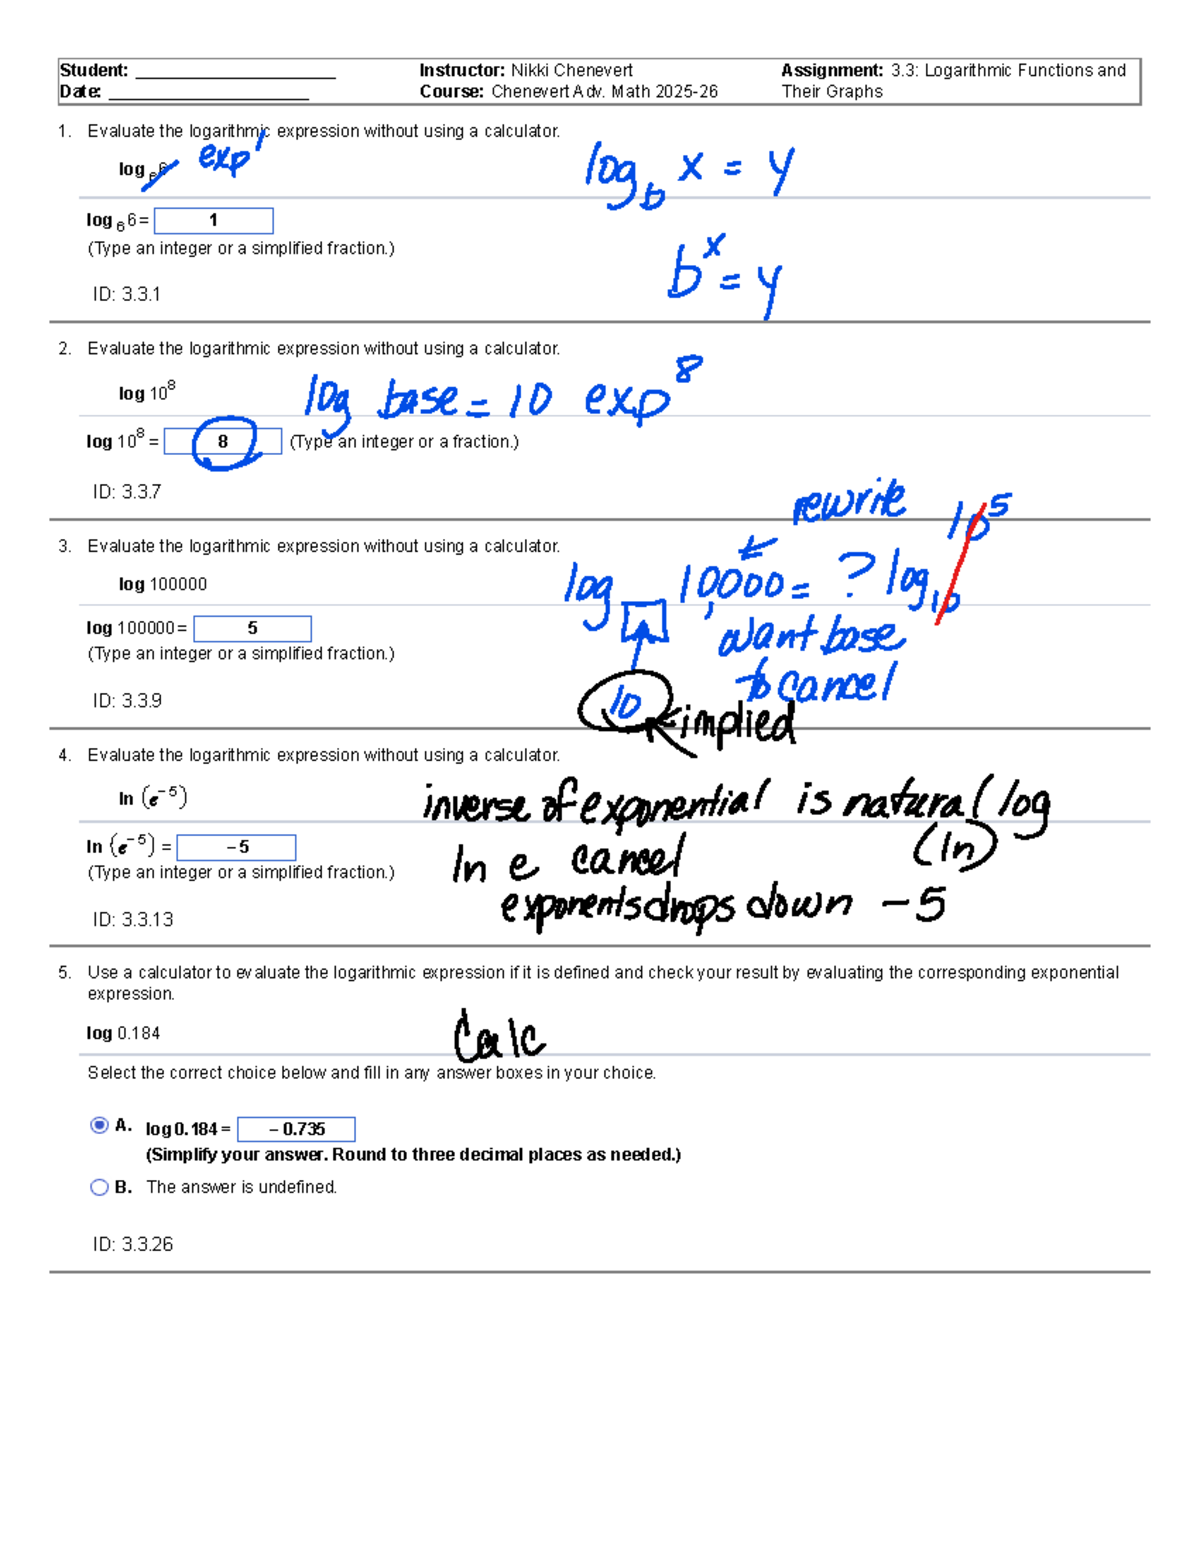 Student: ____________________ Instructor: Nikki Chenevert Assignment: 3.3: Logarithmic Functions and
Date: ____________________ Course: Chenevert Adv. Math 2025-26 Their Graphs
1. Evaluate the logarithmic expression without using a calculator.
log 6 6 exp 1
log b x = y
log 6 6 = 1
(Type an integer or a simplified fraction.)
b^x = y
ID: 3.3.1
2. Evaluate the logarithmic expression without using a calculator.
log 10^8
log base = 10 exp 8
log 10^8 = 8 (Type an integer or a fraction.)
ID: 3.3.7
rewrite 10^5
3. Evaluate the logarithmic expression without using a calculator.
log 100000
log 10,000 = ? log 10
log 100000 = 5
want base
(Type an integer or a simplified fraction.)
to cancel
ID: 3.3.9
10 implied
4. Evaluate the logarithmic expression without using a calculator.
ln (e^-5)
inverse of exponential is natural log
(ln)
ln (e^-5) = -5
ln e cancel
(Type an integer or a simplified fraction.)
exponents drops down -5
ID: 3.3.13
5. Use a calculator to evaluate the logarithmic expression if it is defined and check your result by evaluating the corresponding exponential
expression.
log 0.184
Calc
Select the correct choice below and fill in any answer boxes in your choice.
A. log 0.184 = -0.735
(Simplify your answer. Round to three decimal places as needed.)
B. The answer is undefined.
ID: 3.3.26